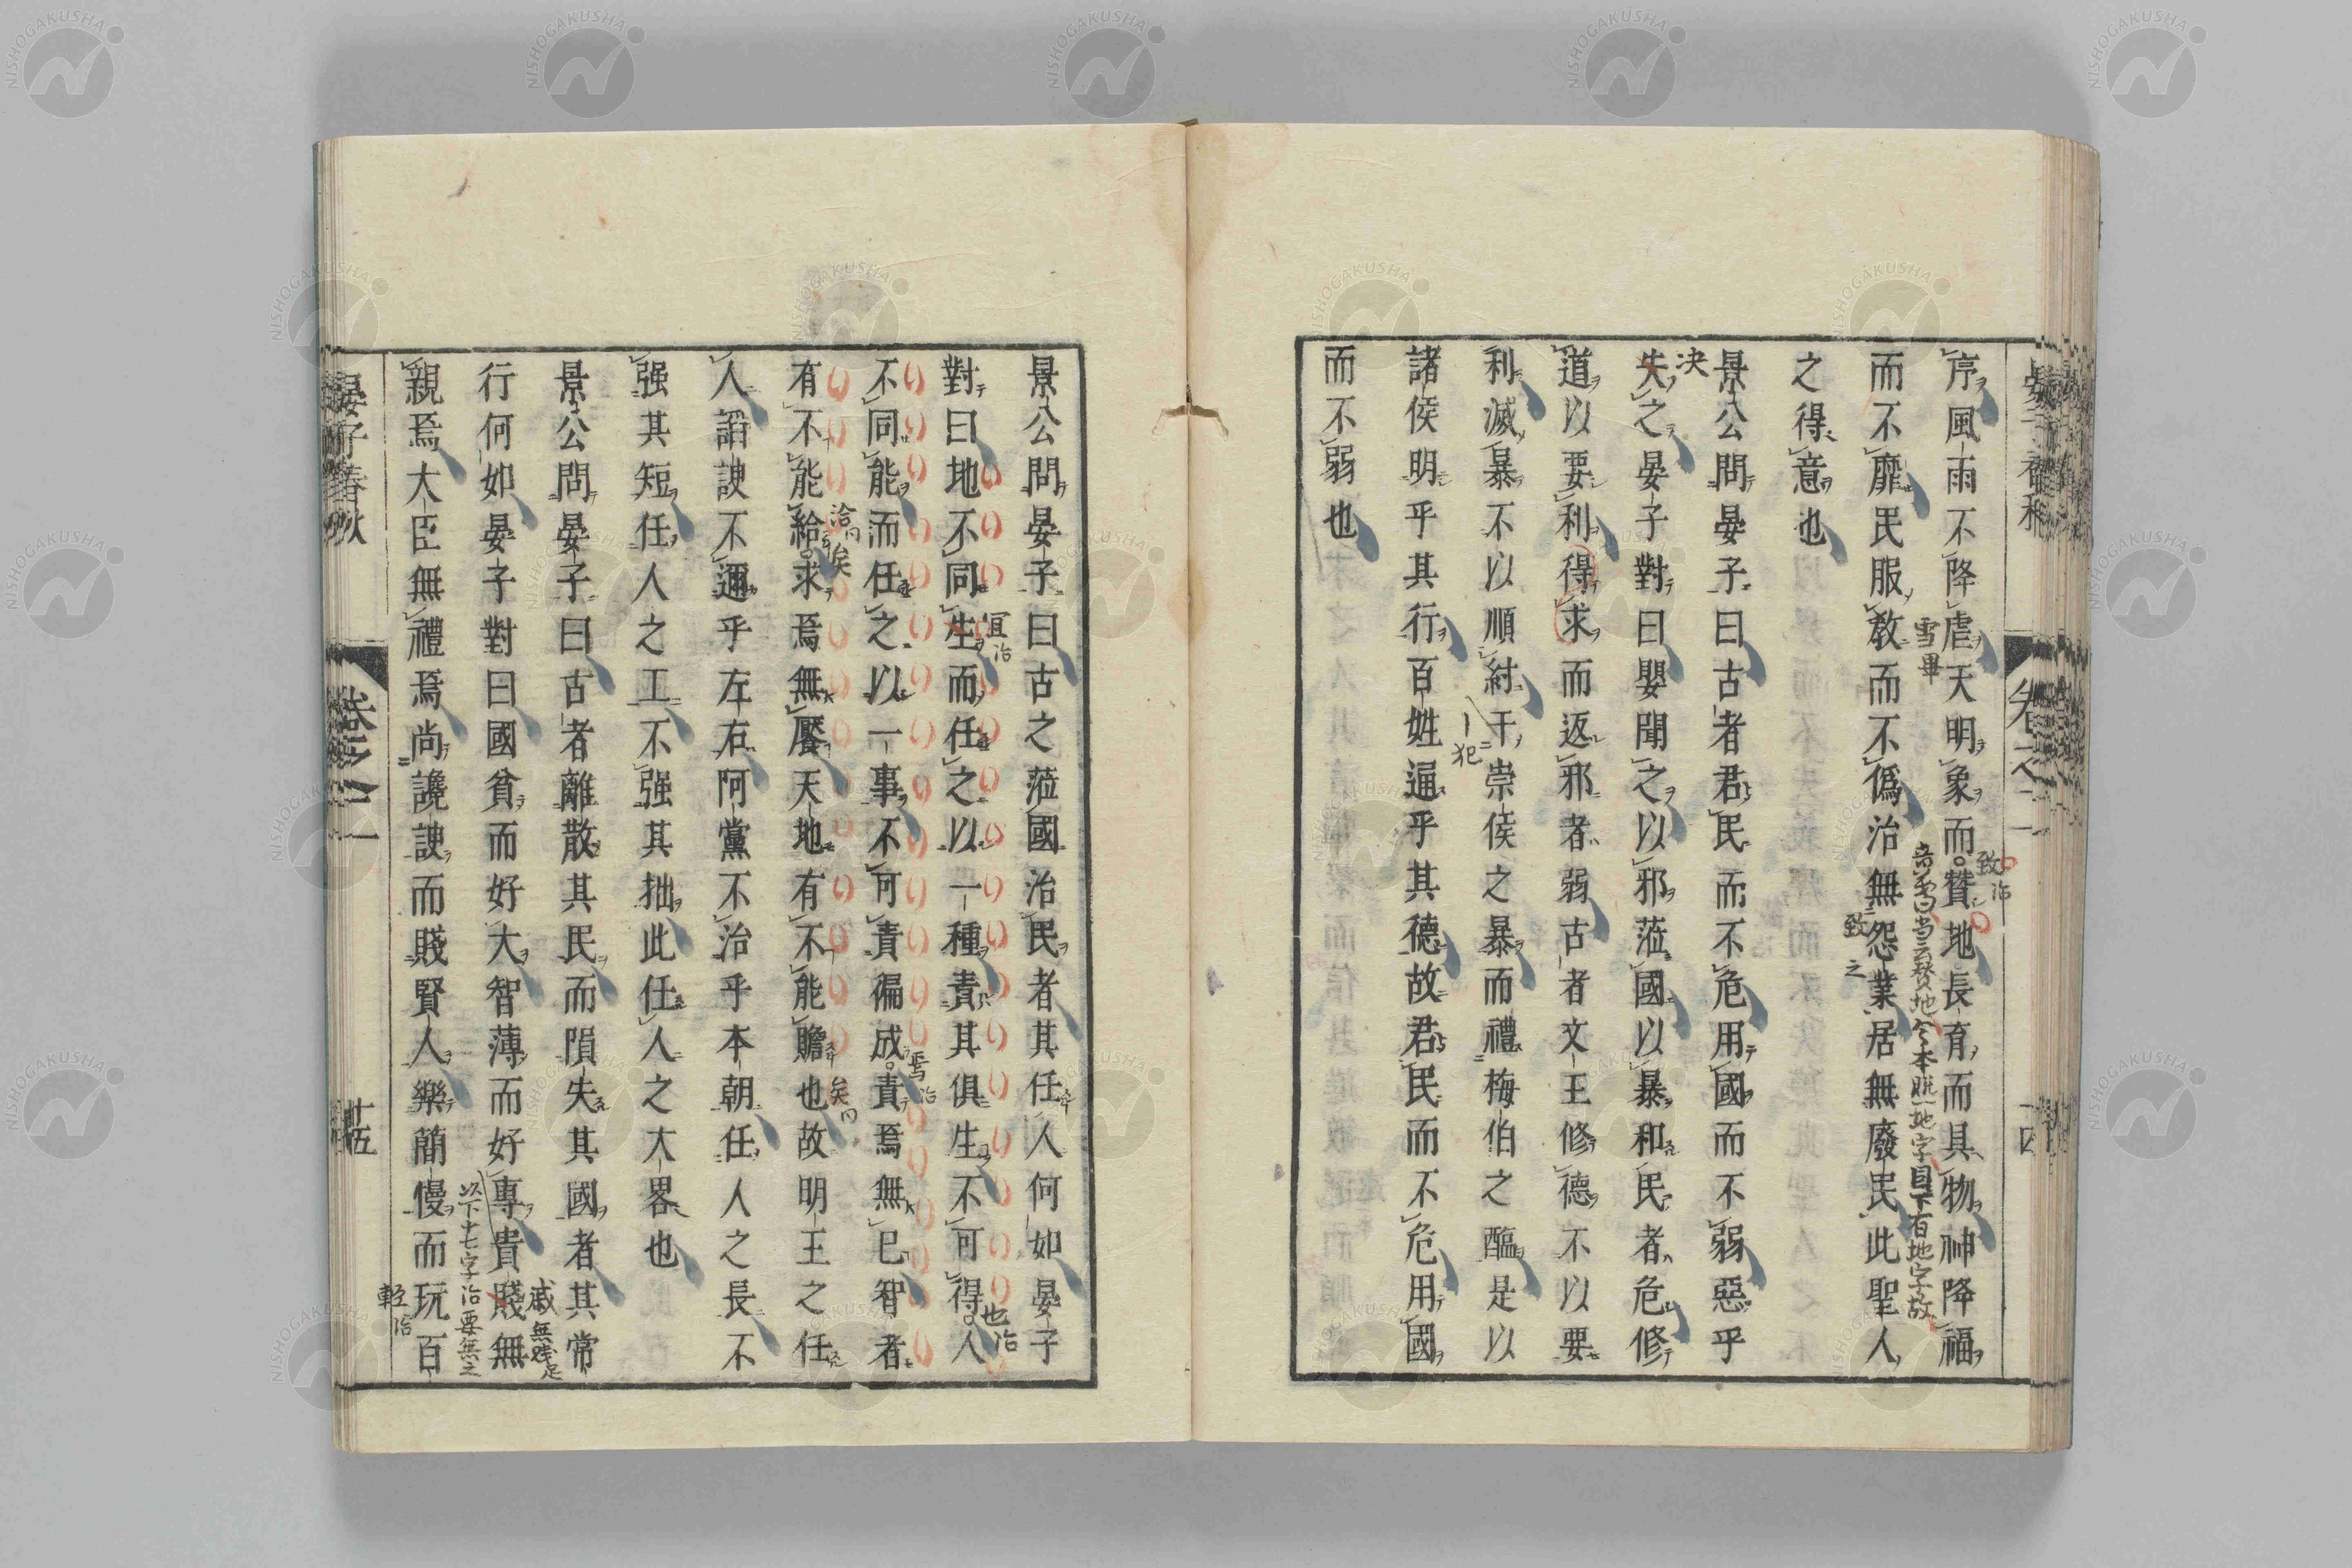 序風雨不降虐天明象而贊地長育而具物神降福
而不靡民服教而不僞治無怨業居無廢民此聖人
之得意也
景公問晏子曰古者君民而不危用國而不弱惡乎
失之晏子對曰嬰聞之以邪蒞國以暴和民者危修
道以要利得求而返邪者弱古者文王修德不以要
利滅暴不以順紂干崇侯之暴而禮梅伯之醢是以
諸侯明乎其行百姓通乎其德故君民而不危用國
而不弱也
景公問晏子曰古之蒞國治民者其任人何如晏子
對曰地不同生而任之以一種責其俱生不可得人
不同能而任之以一事不可責徧成責焉無已智者
有不能給求焉無饜天地有不能贍也故明王之任
人諂諛不邇乎左右阿黨不治乎本朝任人之長不
强其短任人之工不强其拙此任人之大畧也
景公問晏子曰古者離散其民而隕失其國者其常
行何如晏子對曰國貧而好大智薄而好專貴賤無
親焉大臣無禮焉尚讒諛而賤賢人樂簡慢而玩百
晏子春秋
卷之二
十五
決
雪畢
致治
音雪曰当云贊地今本脱一地字且下有地字故
致之
犯
宜治
也治
焉治
洽
矣
矣
戚無践足
以下十七字治要無之
軽治
NISHOGAKUSHA